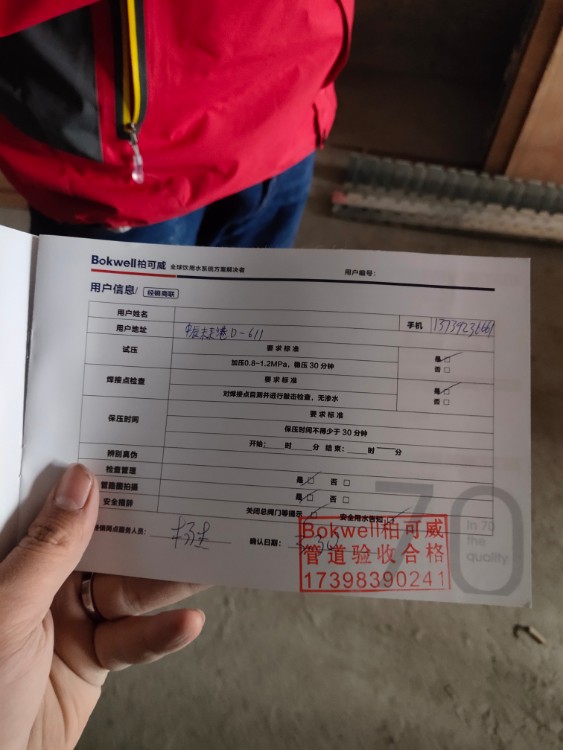 Bokwell柏可威 全球饮用水系统方案解决者 用户编号：
用户信息/ 经销商联
用户姓名 手机 13739236661
用户地址 D-611
试压 要求标准 是□
加压0.8-1.2MPa，稳压30分钟 否□
焊接点检查 要求标准 是□
对焊接点目测并进行敲击检查，无渗水 否□
保压时间 要求标准
保压时间不得少于30分钟
开始：____时____分 结束：____时____分
辨别真伪
检查管理 是□ 否□
管路图拍摄 是□ 否□
安全措辞 关闭总阀门等提示□ 安全用水告知□
经销网点服务人员： 确认日期：
70
In 70
the
quality
Bokwell柏可威
管道验收合格
17398390241